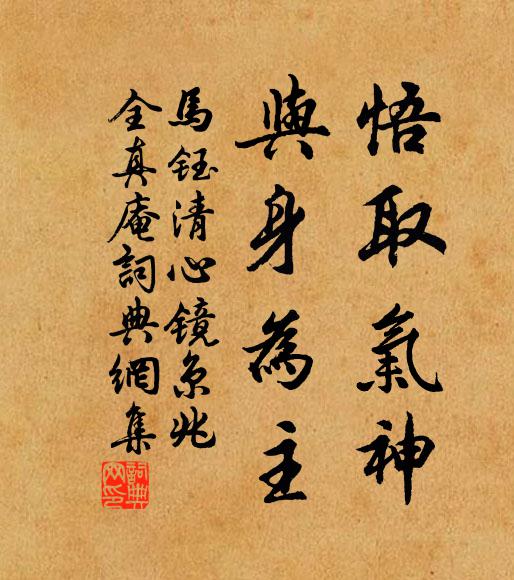 悟取氣神
與身為主
馬鈺清心鏡京兆
全真庵詞典網集
詞典網印